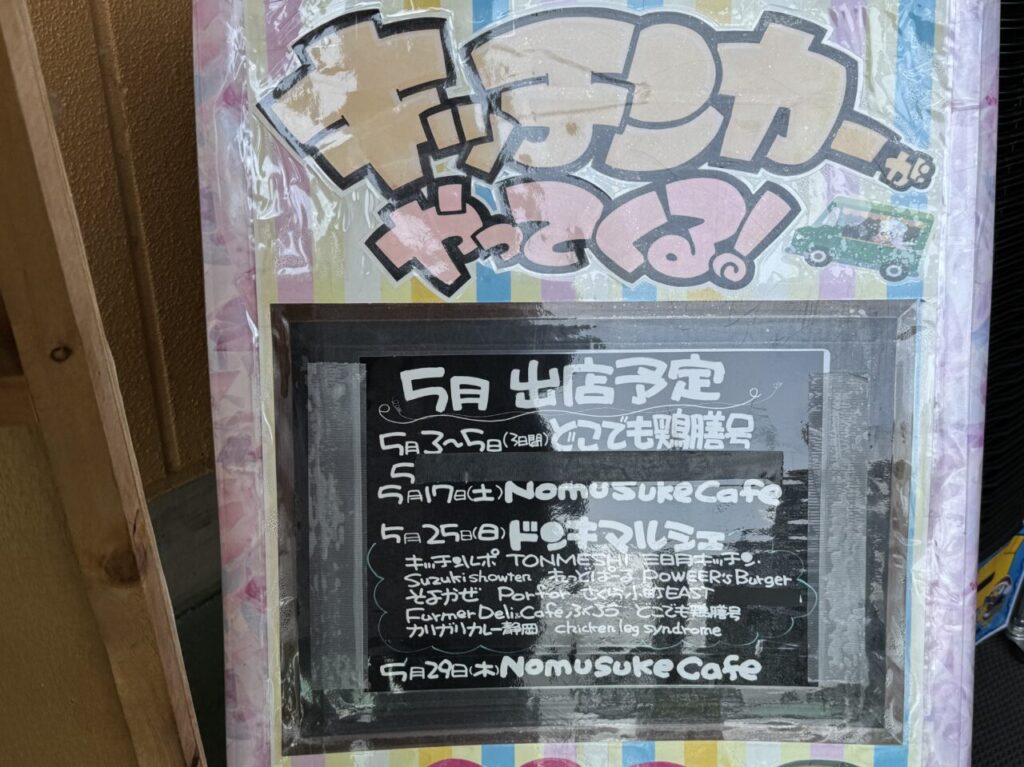 キッチンカーが
やってくる!
5月 出店予定
5月3~5日(3日間)どこでも鶏膳号
5
5月17日(土)Nomusuke Cafe
5月25日(日)ドンキマルシェ
キッチンルポ TONMESHI 三日月キッチン
Suzuki showten まっどばーる POWEER's Burger
そよかぜ Porfor さくら小町EAST
Furmer Deli&Cafe ふくろう どこでも鶏膳号
カリガリカレー静岡 chicken leg syndrome
5月29日(木)Nomusuke Cafe